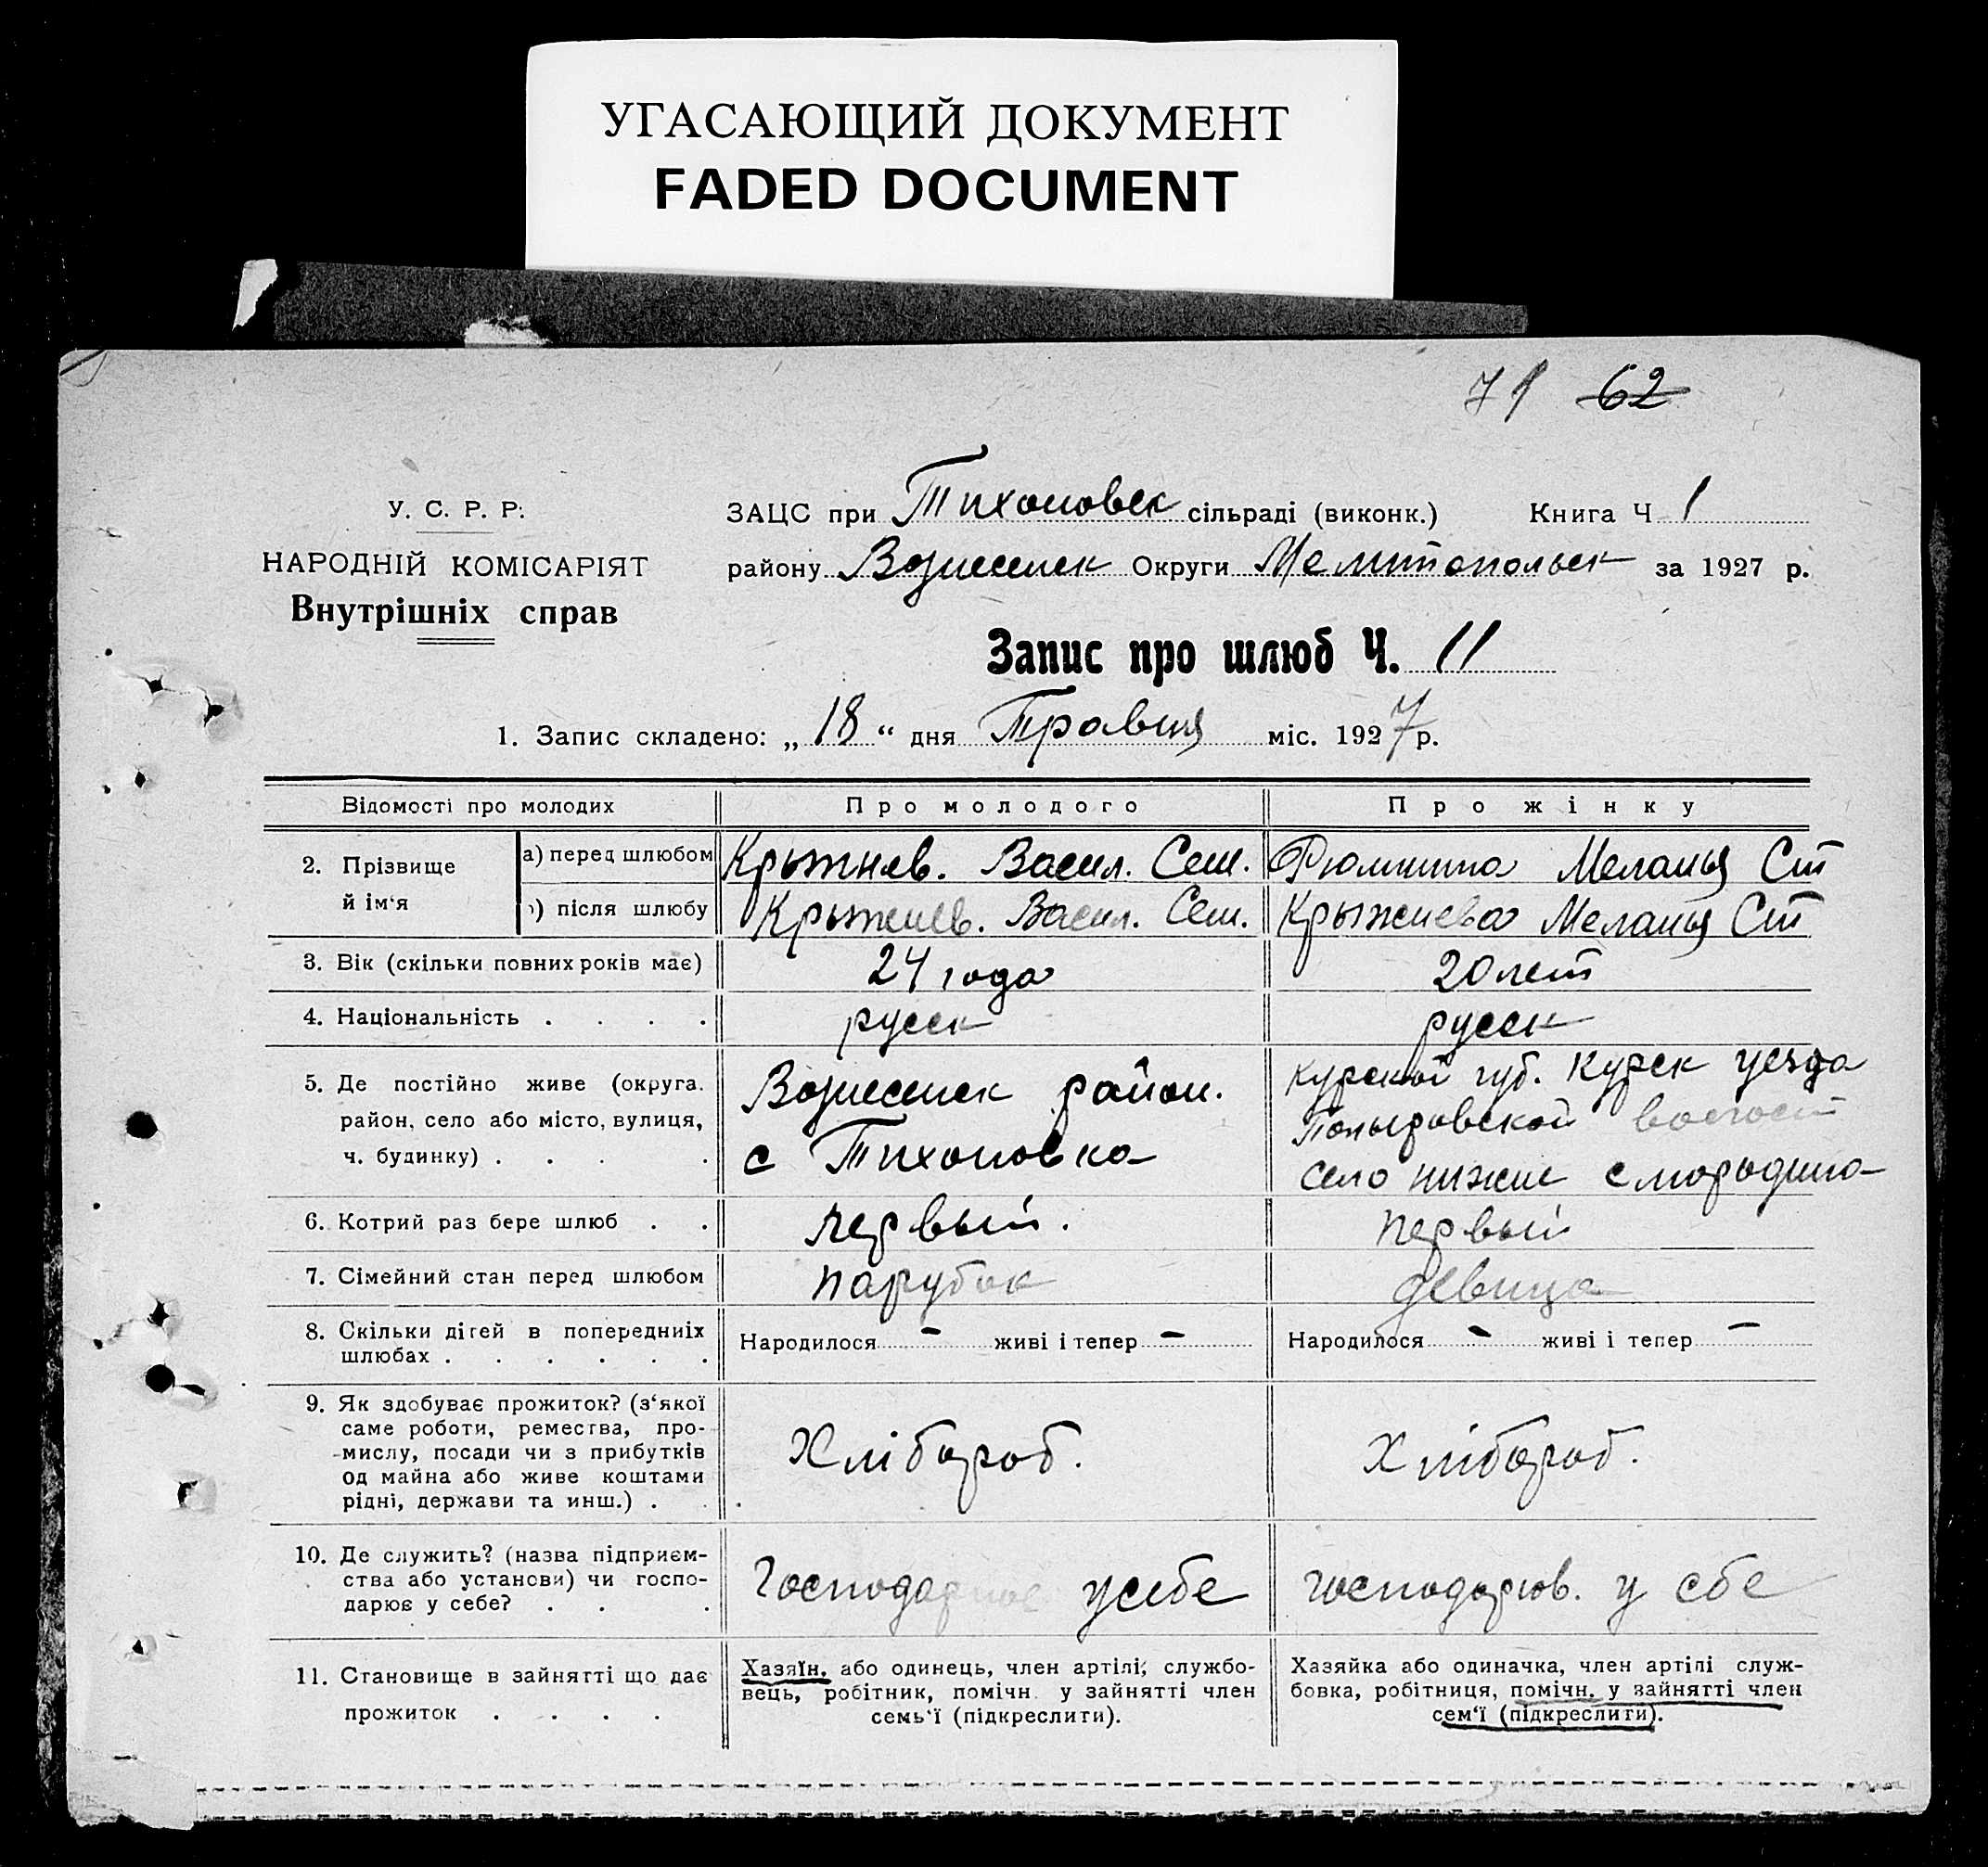 УГАСАЮЩИЙ ДОКУМЕНТ
FADED DOCUMENT
71 62
У. С. Р. Р.
НАРОДНІЙ КОМІСАРІЯТ
Внутрішніх справ
ЗАЦС при Тихоновск сільраді (виконк.) Книга Ч 1
району Вознесенск Округи Мелитопольск за 1927 р.
Запис про шлюб Ч. 11
1. Запис складено: „ 18 “ дня Травня міс. 1927 р.
Відомості про молодих Про молодого Про жінку
2. Прізвище й ім‘я
а) перед шлюбом Крыжнев. Васил. Сем. Меланья Ст
б) після шлюбу Крыжнев. Васил. Сем. Крыжнева Меланья Ст
3. Вік (скільки повних років має) 24 года 20 лет
4. Національність . . . . русск русск
5. Де постійно живе (округа.
район, село або місто, вулиця,
ч. будинку) . . . .
Вознесенск район.
с Тихоновка
Курской губ. Курск уезда
волост
село нижне смородино
6. Котрий раз бере шлюб . . первый. первый
7. Сімейний стан перед шлюбом парубок девица
8. Скільки дітей в попередниіх
шлюбах . . . . . .
Народилося - живі і тепер - Народилося - живі і тепер -
9. Як здобуває прожиток? (з‘якої
саме роботи, ремества, про-
-мислу, посади чи з прибутків
од майна або живе коштами
рідні, держави та инш.) .
Хлібороб. Хлібороб.
10. Де служить? (назва підприєм-
ства або установи) чи госпо-
дарює у себе? . . .
усебе господарюв. у сбе
11. Становище в зайнятті що дає
прожиток . . . .
Хазяїн, або одинець, член артілі; службо-
вець, робітник, помічн. у зайнятті член
семь‘ї (підкреслити).
Хазяйка або одиначка, член артілі служ-
бовка, робітниця, помічн. у зайнятті член
сем‘ї (підкреслити).